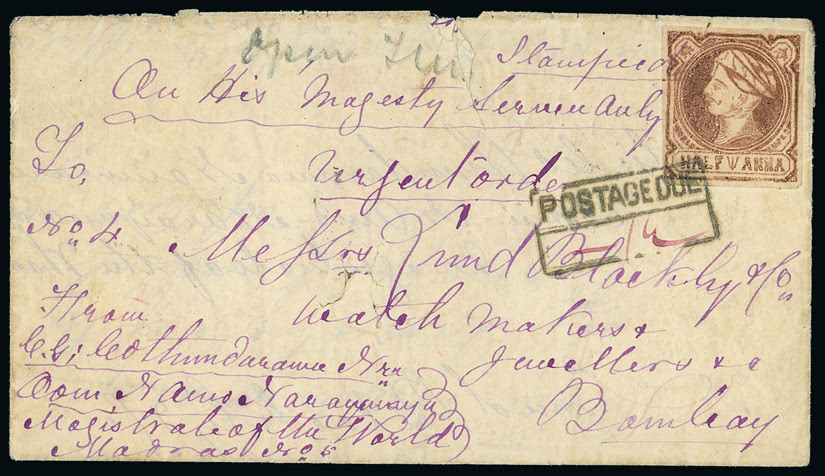 Open
Stampied
On His Magesty Servin only
HALF ANNA
To,
Urgent order
POSTAGE DUE
No. 4 Messrs Lund Blockly & Co
From watch makers &
C. G; Cothundarama
Jewellers & c
Oom Namo Narayanaya
Bombay
Magistrate of the World
Madras No 5